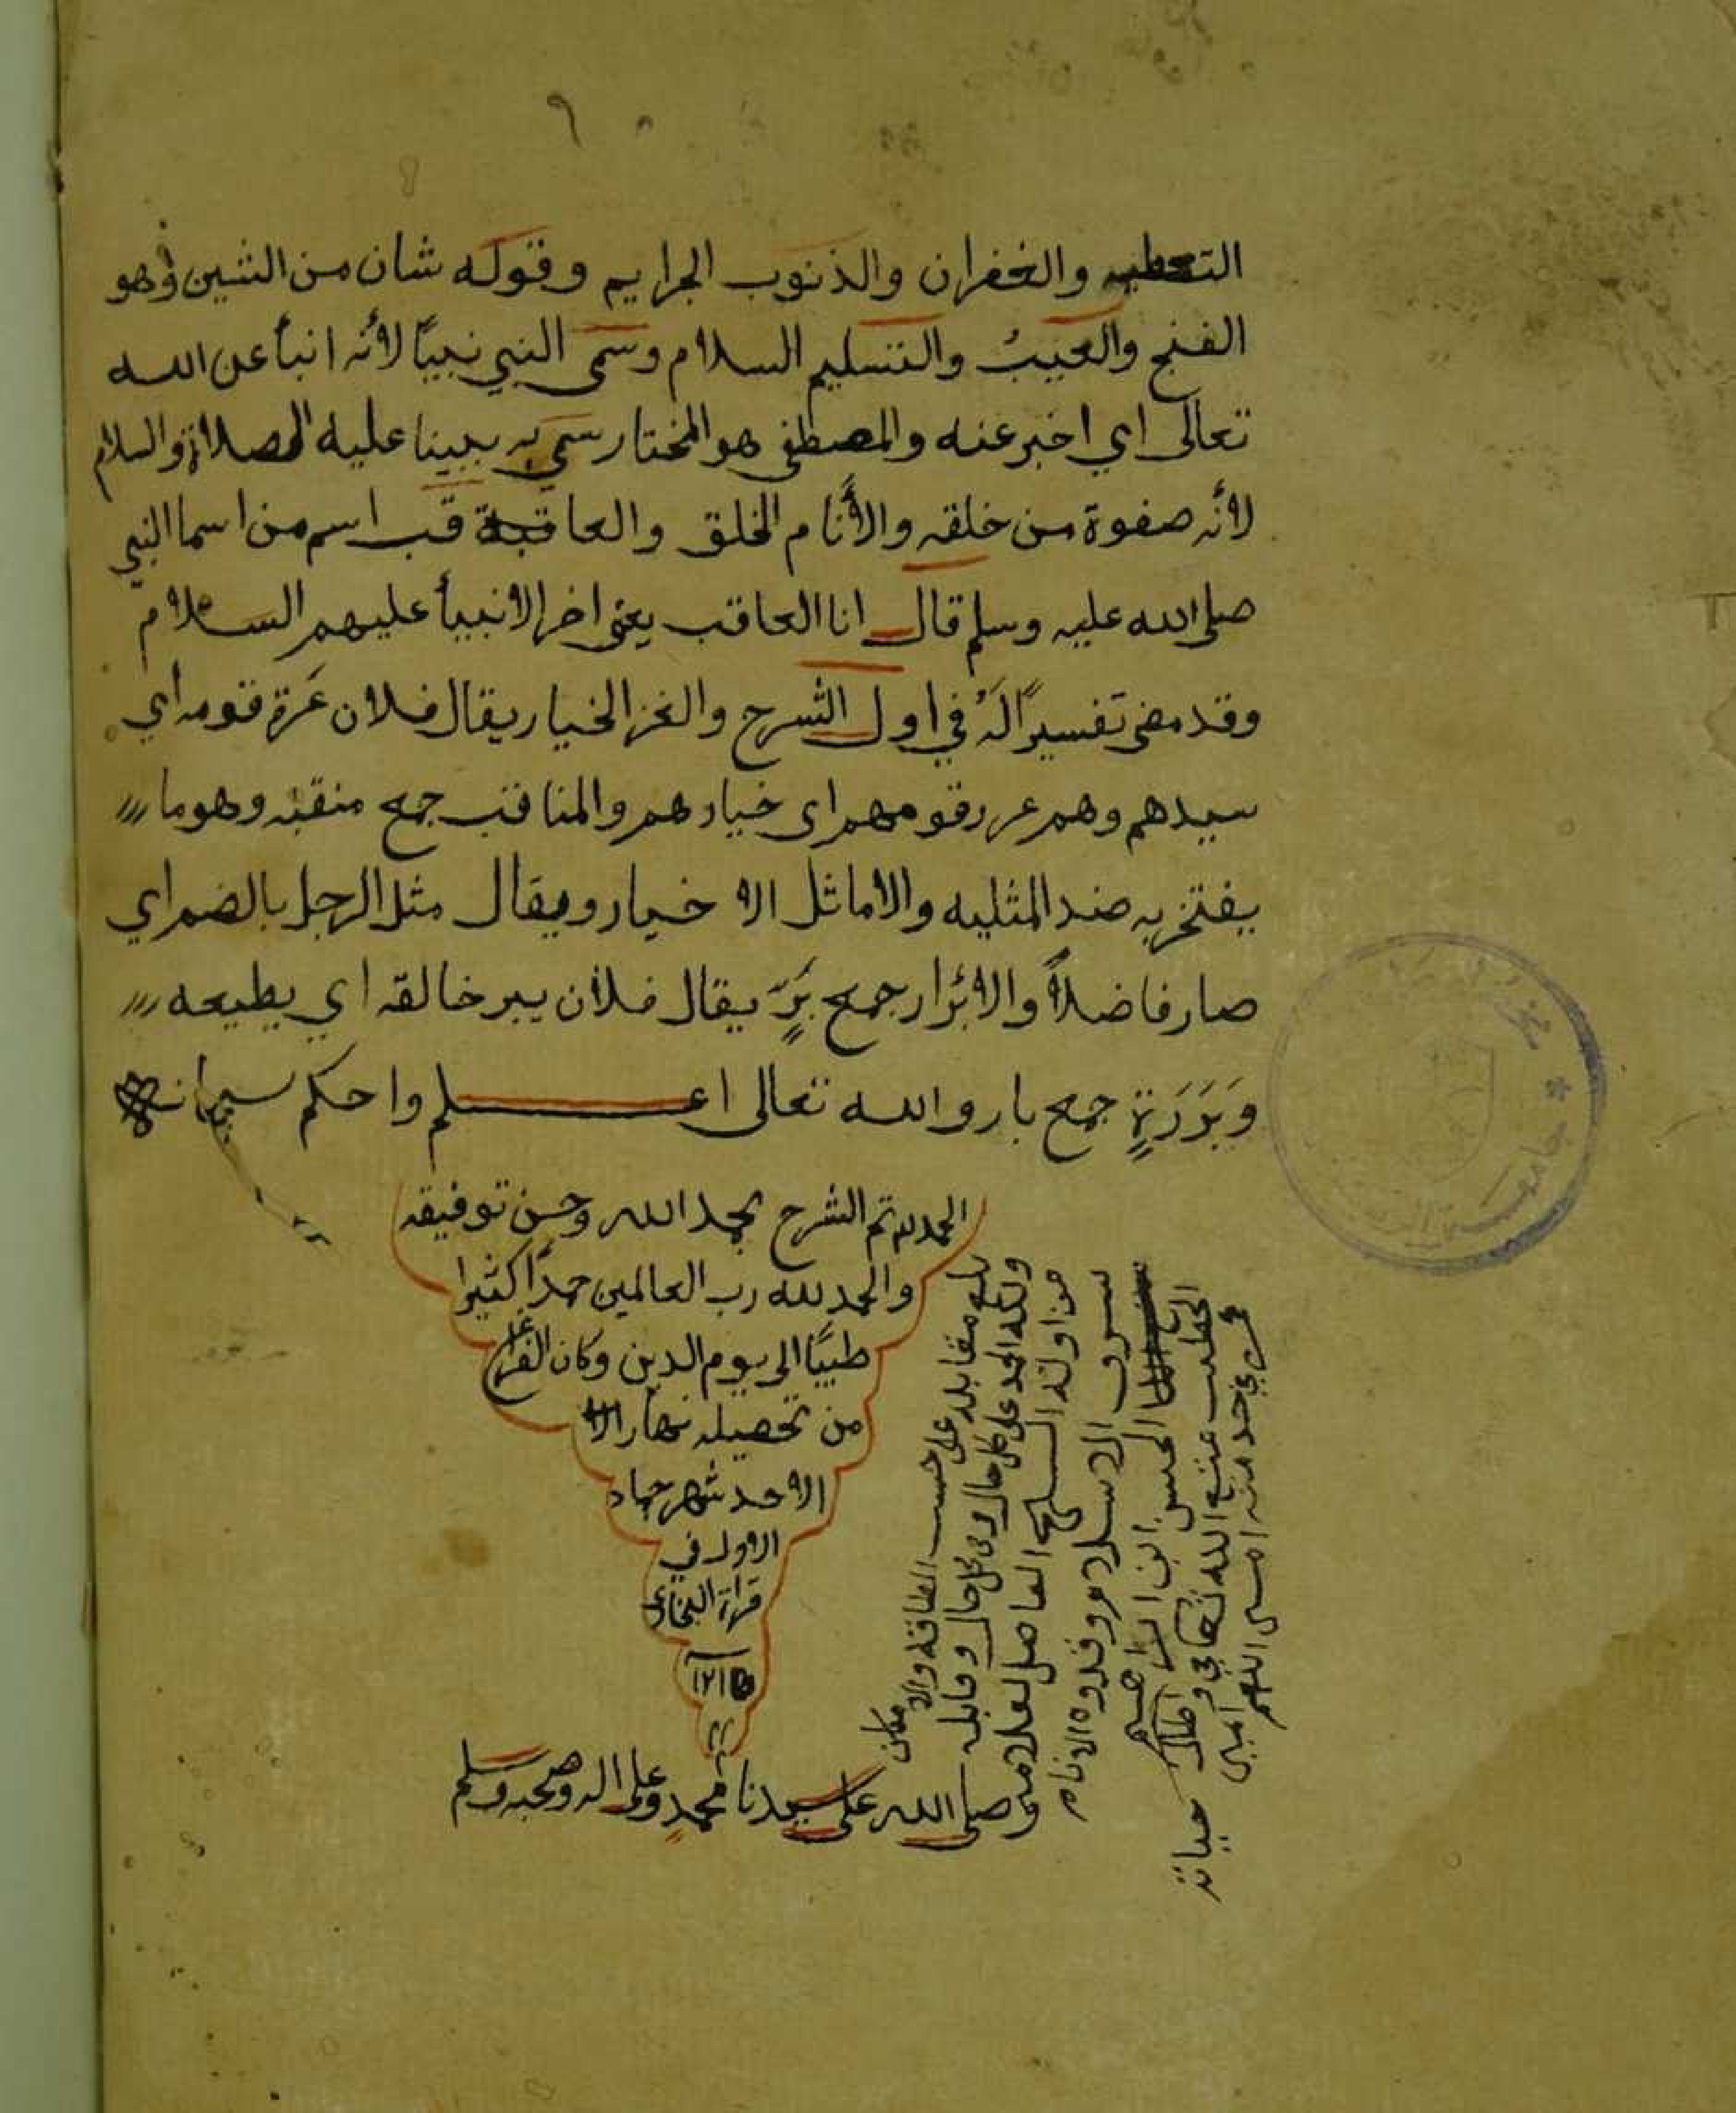 التغطيه والغفران والذنوب الجرايم وقوله شان من الشين وهو
القبح والعيب والتسليم السلام وسمى النبي نبيئًا لأنه انبأ عن الله
تعالى اي اخبر عنه والمصطفى هو المختار سمي به نبينا عليه الصلاة والسلام
لأنه صفوة من خلقه والأنام الخلق والعاقبة قب اسم من اسما النبي
صلى الله عليه وسلم قال انا العاقب يعني اخر الانبيأ عليهم السلام
وقد مضى تفسيرًا لَهُ في اول الشرح والغر الخيار يقال فلان غرة قومه أي
سيدهم وهم غرر قومهم اى خيارهم والمناقب جمع منقبه وهو ما
يفتخر به ضد المثلبه والاماثل الاخيار ويقال مثل الرجل بالضم اي
صار فاضلاً والابرار جمع بَرٍّ يقال فلان يبر خالقه اي يطيعه
وَبَرَرَةٍ جمع بار والله تعالى اعلم واحكم سبحانه
الحمد لله تم الشرح بحمد الله وحسن توفيقه
والحمد لله رب العالمين حمدًا كثيرا
طيبًا الى يوم الدين وكان الفراغ
من تحصيله نهار
الاحد شهر جماد
الاول في
قراة البخاري
١٢١٥
وصلى الله على سيدنا محمد وعلى اله وصحبه وسلم
بلغ مقابلة على حسب الطاقة والامكان
ولله الحمد على كل حال وفي كل حال وقابله
من اوله الشيخ الفاضل العلامه
شرف الاسلام وقدوة الانام
الحسن ابن ابراهيم
الخطيب متع الله تعالى واطال حياته
امين اللهم امين